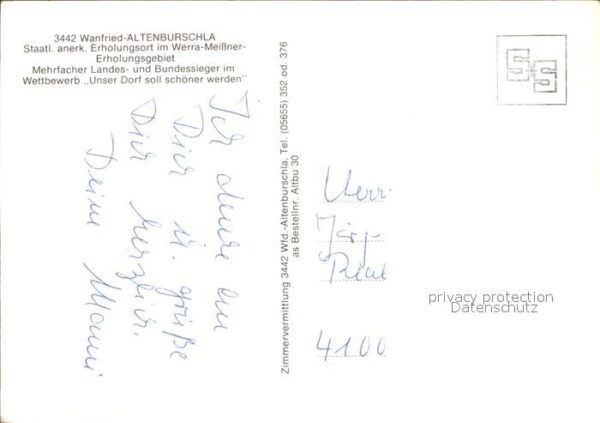 3442 Wanfried-ALTENBURSCHLA
Staatl. anerk. Erholungsort im Werra-Meißner-
Erholungsgebiet
Mehrfacher Landes- und Bundessieger im
Wettbewerb „Unser Dorf soll schöner werden"
Ich denke an
Dich u. grüße
Dich herzlich.
Deine Mammi
Zimmervermittlung 3442 Wfd.-Altenburschla, Tel. (05655) 352 od. 376
as Bestellnr. Altbu 30
Herr
Jörg
4100
privacy protection
Datenschutz